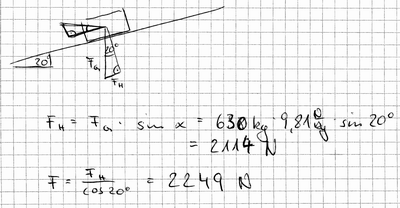 20°
20°
F_G
F_H
F_H = F_G · sin α = 630 kg · 9,81 N/kg · sin 20°
= 2114 N
F = F_H / cos 20° = 2249 N